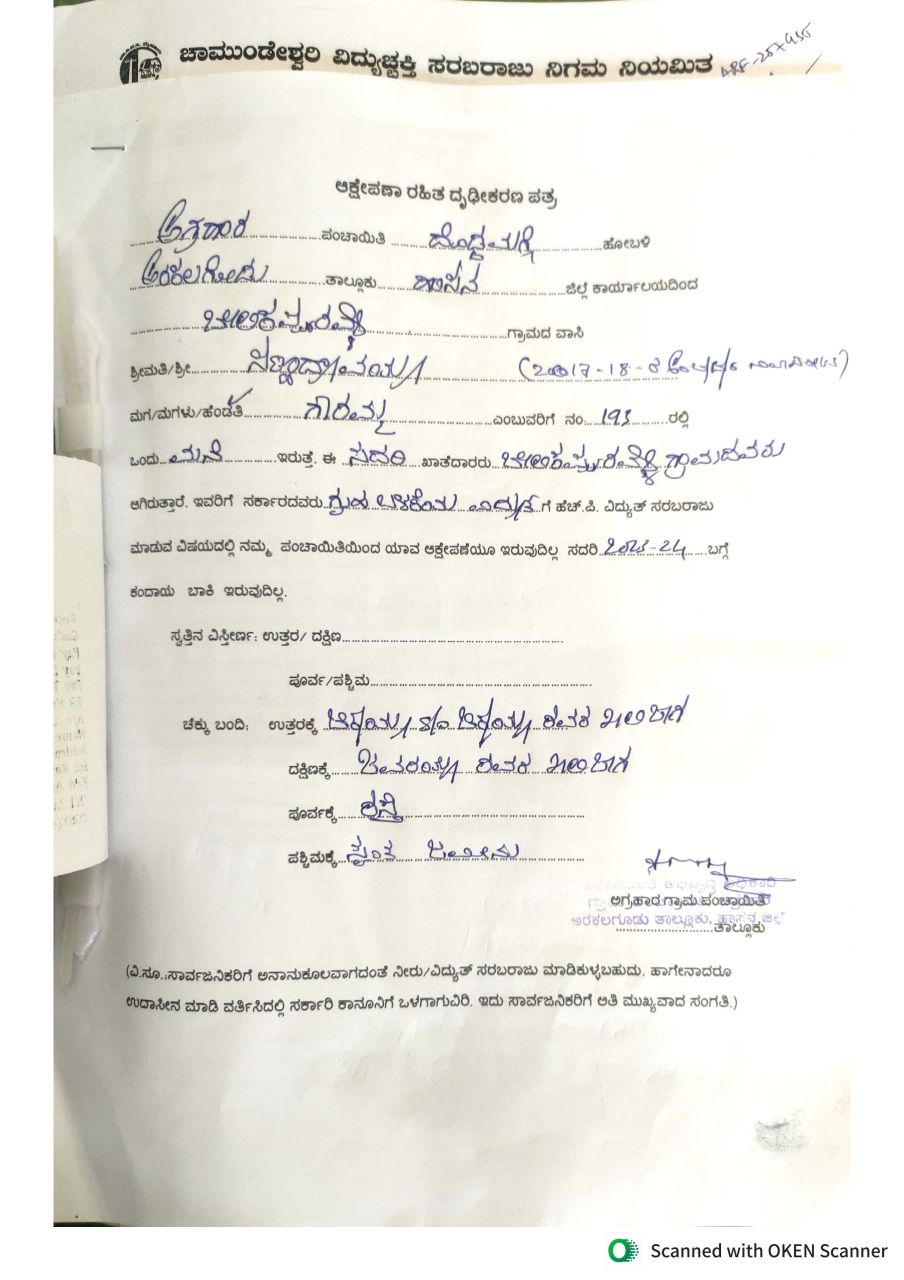 ಚಾಮುಂಡೇಶ್ವರಿ ವಿದ್ಯುಚ್ಛಕ್ತಿ ಸರಬರಾಜು ನಿಗಮ ನಿಯಮಿತ
ಆಕ್ಷೇಪಣಾ ರಹಿತ ದೃಢೀಕರಣ ಪತ್ರ
ಅಗ್ರಹಾರ ಪಂಚಾಯಿತಿ ದೊಡ್ಡಮಗ್ಗೆ ಹೋಬಳಿ
ಅರಕಲಗೋಡು ತಾಲ್ಲೂಕು ಹಾಸನ ಜಿಲ್ಲೆ ಕಾರ್ಯಾಲಯದಿಂದ
ಗ್ರಾಮದ ವಾಸಿ
ಶ್ರೀಮತಿ/ಶ್ರೀ
ಮಗ/ಮಗಳು/ಹೆಂಡತಿ ಗೌರಮ್ಮ ಎಂಬುವರಿಗೆ ನಂ: 193 ರಲ್ಲಿ
ಒಂದು ಮನೆ ಇರುತ್ತೆ. ಈ ಸದರಿ ಖಾತೆದಾರರು ಗ್ರಾಮದವರು
ಆಗಿರುತ್ತಾರೆ. ಇವರಿಗೆ ಸರ್ಕಾರದವರು ಗೃಹ ಬಳಕೆಯ ವಿದ್ಯುತ್ ಗೆ ಹೆಚ್.ಪಿ. ವಿದ್ಯುತ್ ಸರಬರಾಜು
ಮಾಡುವ ವಿಷಯದಲ್ಲಿ ನಮ್ಮ ಪಂಚಾಯಿತಿಯಿಂದ ಯಾವ ಆಕ್ಷೇಪಣೆಯೂ ಇರುವುದಿಲ್ಲ ಸದರಿ 2023-24 ಬಗ್ಗೆ
ಕಂದಾಯ ಬಾಕಿ ಇರುವುದಿಲ್ಲ.
ಸ್ವತ್ತಿನ ವಿಸ್ತೀರ್ಣ: ಉತ್ತರ/ ದಕ್ಷಿಣ
ಪೂರ್ವ/ಪಶ್ಚಿಮ
ಚೆಕ್ಕು ಬಂದಿ: ಉತ್ತರಕ್ಕೆ s/o ರವರ ಖಾಲಿ ಜಾಗ
ದಕ್ಷಿಣಕ್ಕೆ ರವರ ಖಾಲಿ ಜಾಗ
ಪೂರ್ವಕ್ಕೆ ರಸ್ತೆ
ಪಶ್ಚಿಮಕ್ಕೆ ಸ್ವಂತ ಜಮೀನು
ಪಂಚಾಯಿತಿ ಅಭಿವೃದ್ಧಿ ಅಧಿಕಾರಿ
ಅಗ್ರಹಾರ ಗ್ರಾಮ ಪಂಚಾಯಿತಿ
ಅರಕಲಗೂಡು ತಾಲ್ಲೂಕು, ಹಾಸನ ಜಿಲ್ಲೆ
ತಾಲ್ಲೂಕು
(ವಿ.ಸೂ.:ಸಾರ್ವಜನಿಕರಿಗೆ ಅನಾನುಕೂಲವಾಗದಂತೆ ನೀರು/ವಿದ್ಯುತ್ ಸರಬರಾಜು ಮಾಡಿಕುಳ್ಳಬಹುದು. ಹಾಗೇನಾದರೂ
ಉದಾಸೀನ ಮಾಡಿ ವರ್ತಿಸಿದಲ್ಲಿ ಸರ್ಕಾರಿ ಕಾನೂನಿಗೆ ಒಳಗಾಗುವಿರಿ. ಇದು ಸಾರ್ವಜನಿಕರಿಗೆ ಅತಿ ಮುಖ್ಯವಾದ ಸಂಗತಿ.)
Scanned with OKEN Scanner